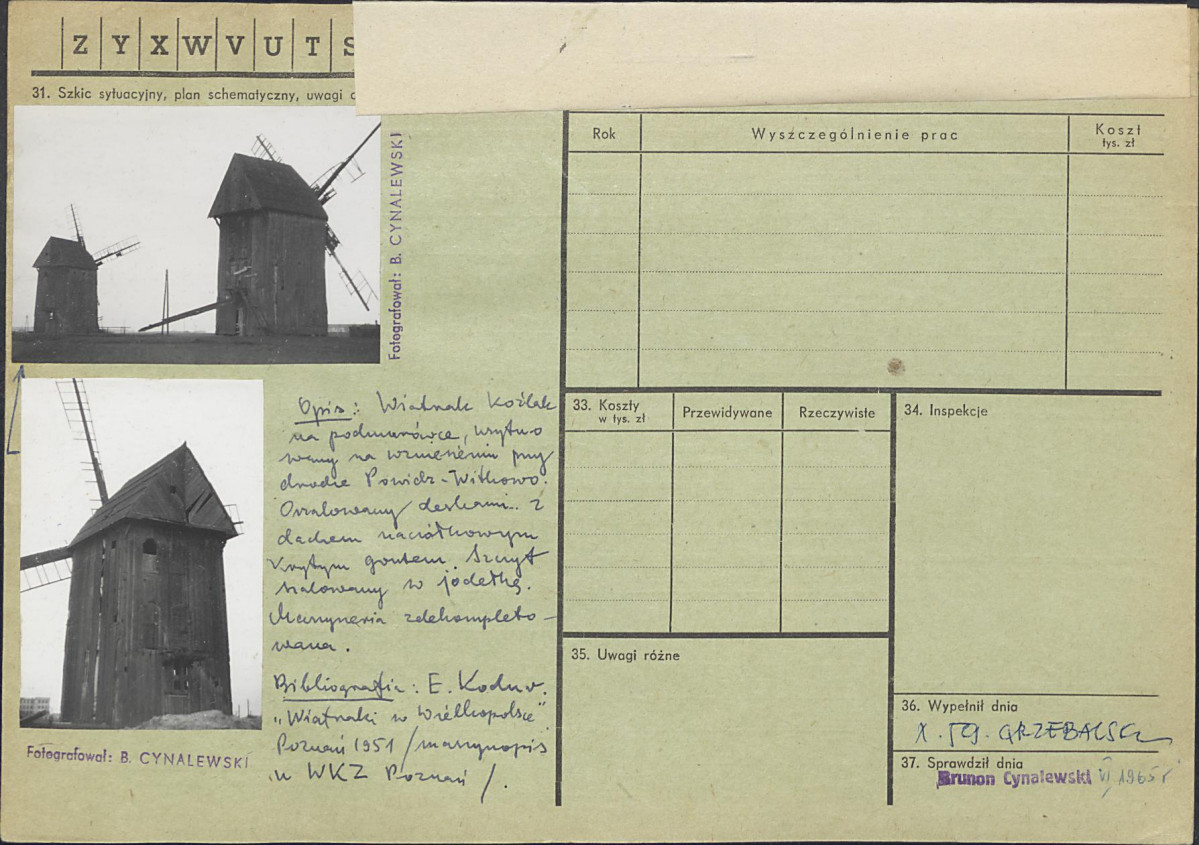 Z Y X W V U T S
31. Szkic sytuacyjny, plan schematyczny, uwagi
Fotografował: B. CYNALEWSKI
Opis: Wiatrak Koźlak
na podmurówce, usytuo
wany na wzniesieniu przy
drodze Powidz-Witkowo.
Oszalowany deskami z
dachem naczółkowym
krytym gontem. Szczyt
szalowany w jodełkę.
Maszyneria zdekompleto-
wana.
Bibliografia: E.
"Wiatraki w Wielkopolsce"
Poznań 1951 /maszynopis
w WKZ Poznań/.
Fotografował: B. CYNALEWSKI
Rok
Wyszczególnienie prac
Koszt
tys. zł
33. Koszty
w tys. zł
Przewidywane
Rzeczywiste
34. Inspekcje
35. Uwagi różne
36. Wypełnił dnia
X. 59. GRZEBALSKI
37. Sprawdził dnia
Brunon Cynalewski VI 1965 r